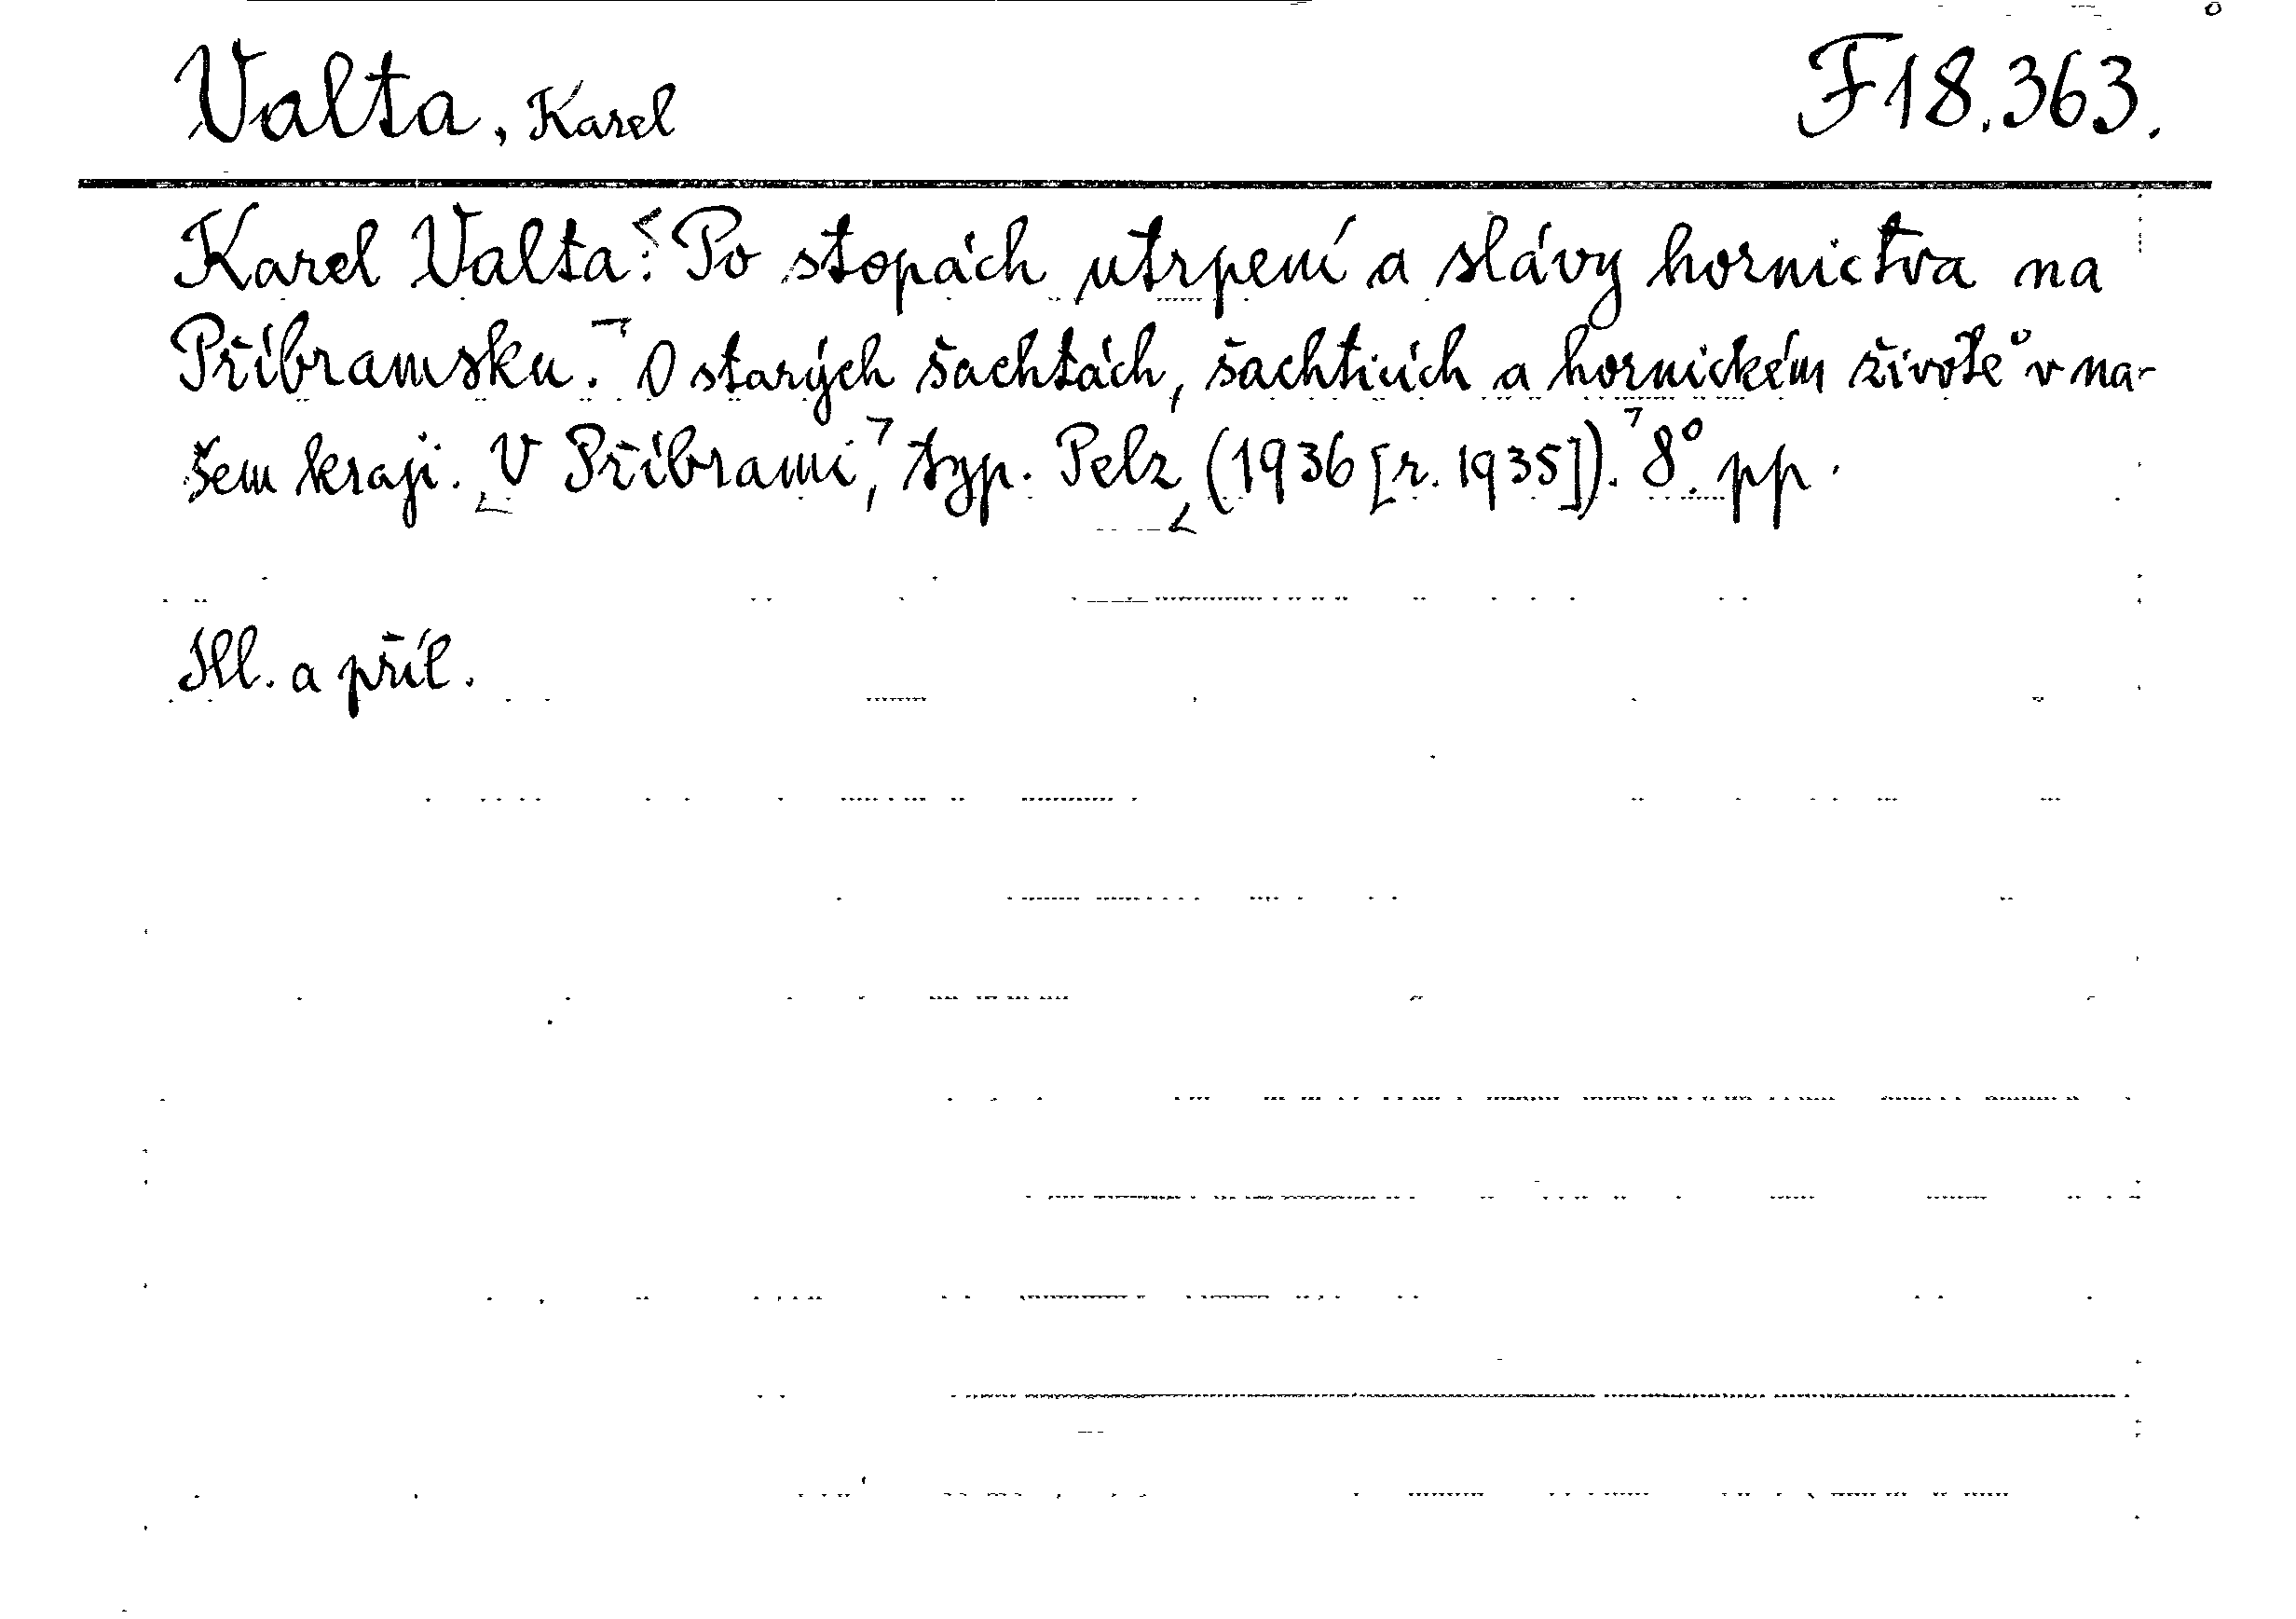 Valta, Karel F 18.363.
Karel Valta: Po stopách utrpení a slávy hornictva na
Příbramsku. O starých šachtách, šachticích a hornickém životě v na-
šem kraji. V Příbrami, typ. Pelz (1936 [r. 1935]). 8° pp.
Ill. a příl.